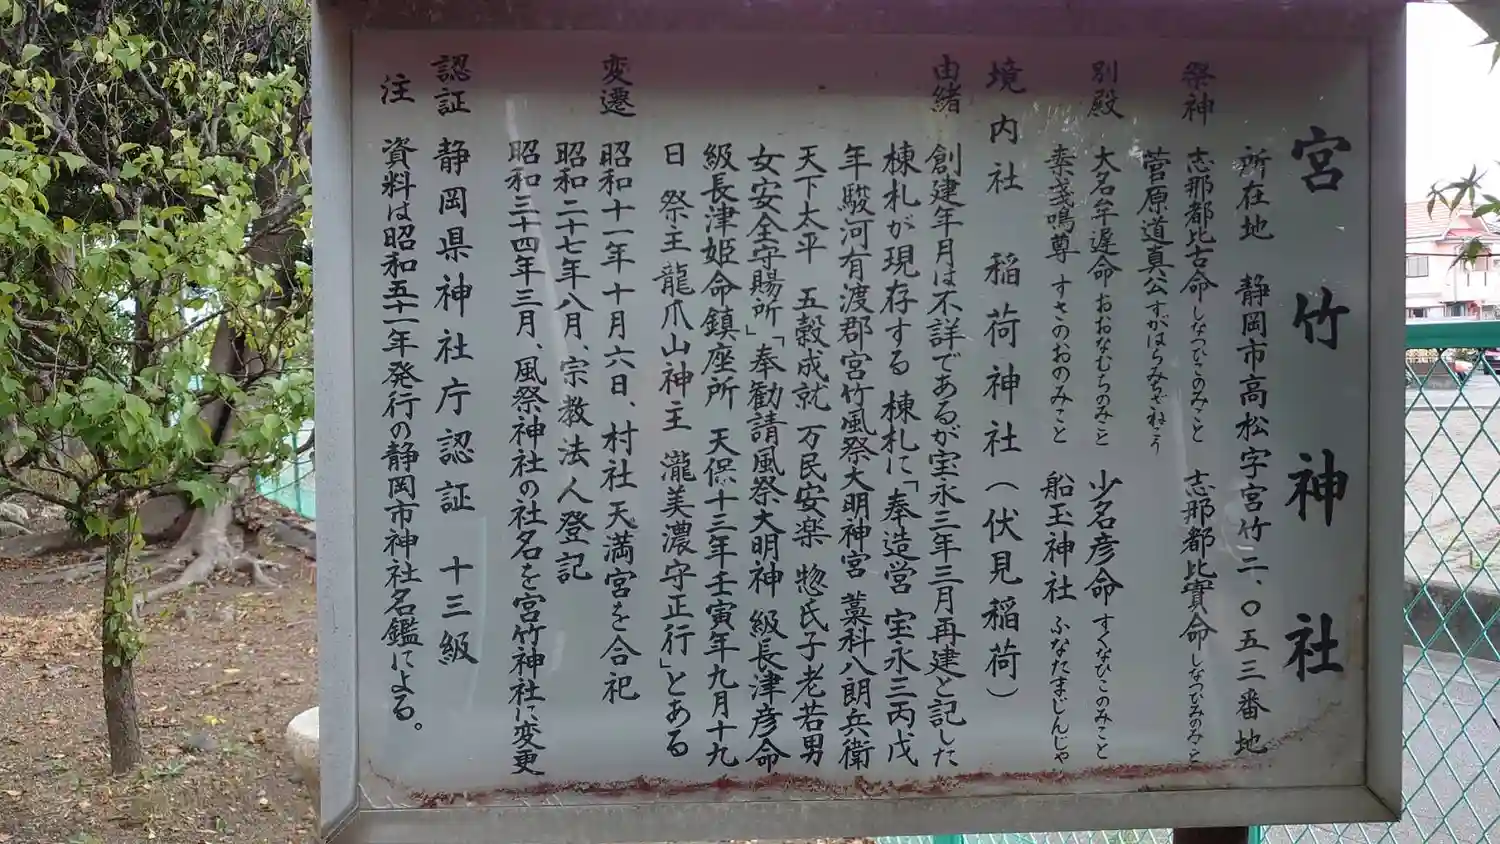 宮竹神社
所在地 静岡市高松字宮竹二、〇五三番地
祭神 志那都比古命しなつひこのみこと 志那都比賣命しなつひめのみこと
菅原道真公すがはらみちざねこう
別殿 大名牟遅命おおなむちのみこと 少名彦命すくなひこのみこと
素戔鳴尊すさのおのみこと 船玉神社ふなたまじんじゃ
境内社 稲荷神社(伏見稲荷)
由緒 創建年月は不詳であるが宝永三年三月再建と記した
棟札が現存する 棟札に「奉造営 宝永三丙戊
年駿河有渡郡宮竹風祭大明神宮 藁科八朗兵衛
天下太平 五穀成就 万民安楽 惣氏子老若男
女安全守賜所」「奉勧請風祭大明神 級長津彦命
級長津姫命鎮座所 天保十三年壬寅年九月十九
日 祭主龍爪山神主 瀧美濃守正行」とある
変遷 昭和十一年十月六日、村社天満宮を合祀
昭和二十七年八月、宗教法人登記
昭和三十四年三月、風祭神社の社名を宮竹神社に変更
認証 静岡県神社庁認証 十三級
注 資料は昭和五十一年発行の静岡市神社名鑑による。